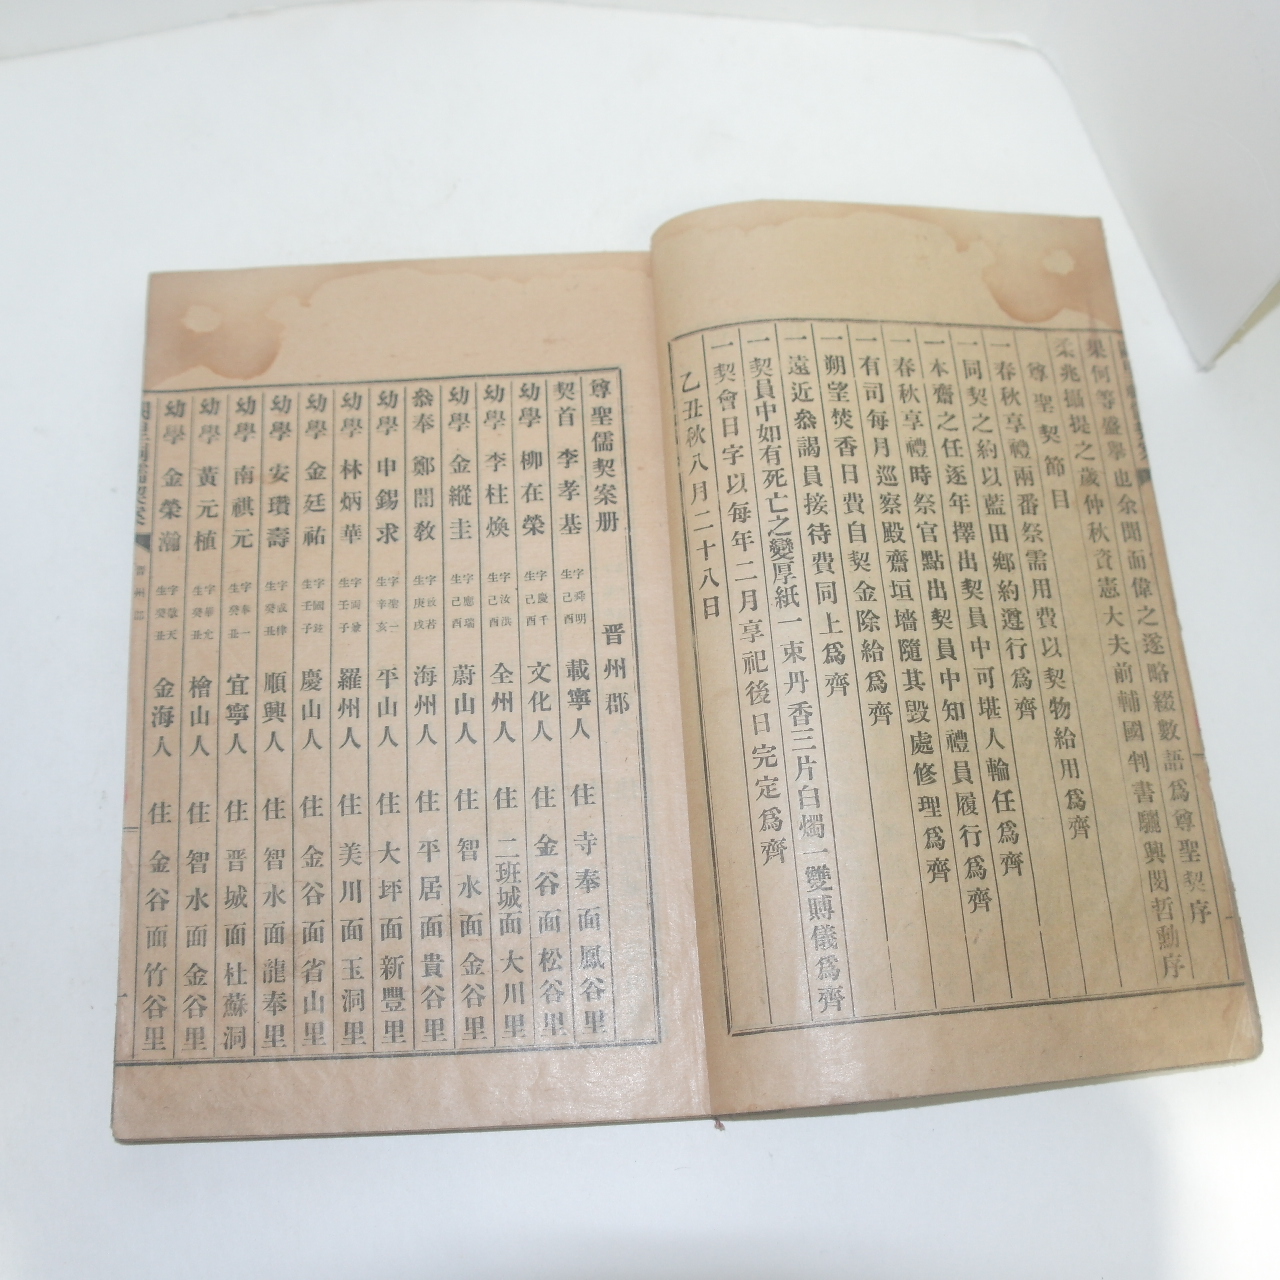 果何等盛擧也余聞而偉之遂略綴數語爲尊聖契序
柔兆攝提之歲仲秋資憲大夫前輔國判書驪興閔哲勳序
尊聖契節目
一春秋享禮兩番祭需用費以契物給用爲齊
一同契之約以藍田鄕約遵行爲齊
一本齋之任逐年擇出契員中可堪人輪任爲齊
一春秋享禮時祭官點出契員中知禮員履行爲齊
一有司每月巡察殿齋垣墻隨其毀處修理爲齊
一朔望焚香日費自契金除給爲齊
一遠近叅謁員接待費同上爲齊
一契員中如有死亡之變厚紙一束丹香三片白燭一雙賻儀爲齊
一契會日字以每年二月享祀後日完定爲齊
乙丑秋八月二十八日
尊聖儒契案册 晋州郡
契首 李孝基 字舜明 生己酉 載寧人 住 寺奉面鳳谷里
幼學 柳在榮 字慶千 生己酉 文化人 住 金谷面松谷里
幼學 李柱煥 字汝洪 生己酉 全州人 住 二班城面大川里
幼學 金縱圭 字應瑞 生己酉 蔚山人 住 智水面金谷里
叅奉 鄭誾敎 字敬若 生庚戌 海州人 住 平居面貴谷里
幼學 申錫求 生辛亥 平山人 住 大坪面新豐里
幼學 林炳華 生壬子 羅州人 住 美川面玉洞里
幼學 金廷祐 字國 生壬子 慶山人 住 金谷面省山里
幼學 安瓚壽 字成 生癸丑 順興人 住 智水面龍奉里
幼學 南祺元 字 一 生癸丑 宜寧人 住 晋城面杜蘇洞
幼學 黃元植 字華允 生癸丑 檜山人 住 智水面金谷里
幼學 金榮瀚 字敬天 生癸丑 金海人 住 金谷面竹谷里
晋州郡 一